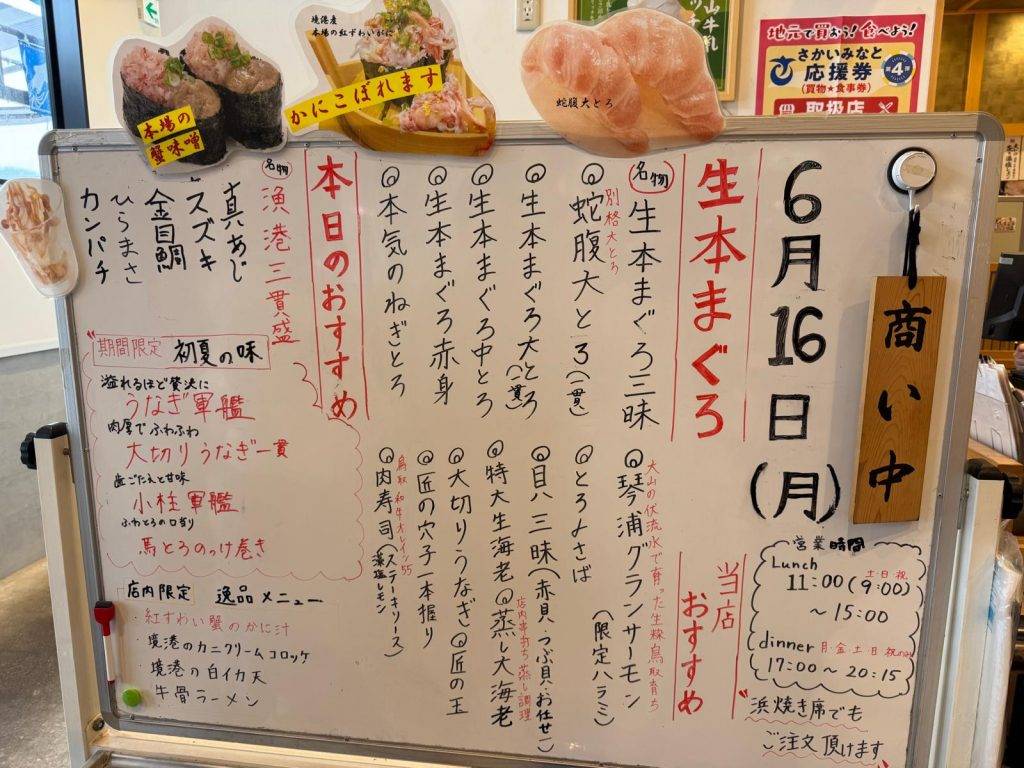 境港産
本場の紅ずわいがに
かにこぼれます
本場の
蟹味噌
蛇腹大とろ
地元で買おう!食べよう!
さかいみなと
応援券
第4弾
(買物★食事券)
取扱店
商い中
6月16日(月)
営業時間
Lunch
土・日・祝
11:00(9:00)
~15:00
dinner 月・金・土・日・祝のみ
17:00~20:15
浜焼き席でも
ご注文頂けます
生本まぐろ
名物
生本まぐろ三昧
別格大とろ
蛇腹大とろ(一貫)
生本まぐろ大とろ(一貫)
生本まぐろ中とろ
生本まぐろ赤身
本気のねぎとろ
当店
おすすめ
大山の伏流水で育った生粋鳥取育ち
琴浦グランサーモン
(限定ハラミ)
とろよさば
貝八三昧(赤貝・つぶ貝・お任せ一
特大生海老
店内串打ち蒸し調理
蒸し大海老
大切りうなぎ
匠の玉
匠の穴子一本握り
鳥取和牛オレイン55
肉寿司(ステーキソース)
藻塩レモン
本日のおすすめ
名物
漁港三貫盛
真あじ
スズキ
金目鯛
ひらまさ
カンパチ
期間限定 初夏の味
溢れるほど贅沢に
うなぎ軍艦
肉厚でふわふわ
大切りうなぎ一貫
歯ごたえと甘味
小柱軍艦
ふわとろの口当り
馬とろのっけ巻き
店内限定 逸品メニュー
・紅ずわい蟹のかに汁
・境港のカニクリームコロッケ
・境港の白イカ天
・牛骨ラーメン